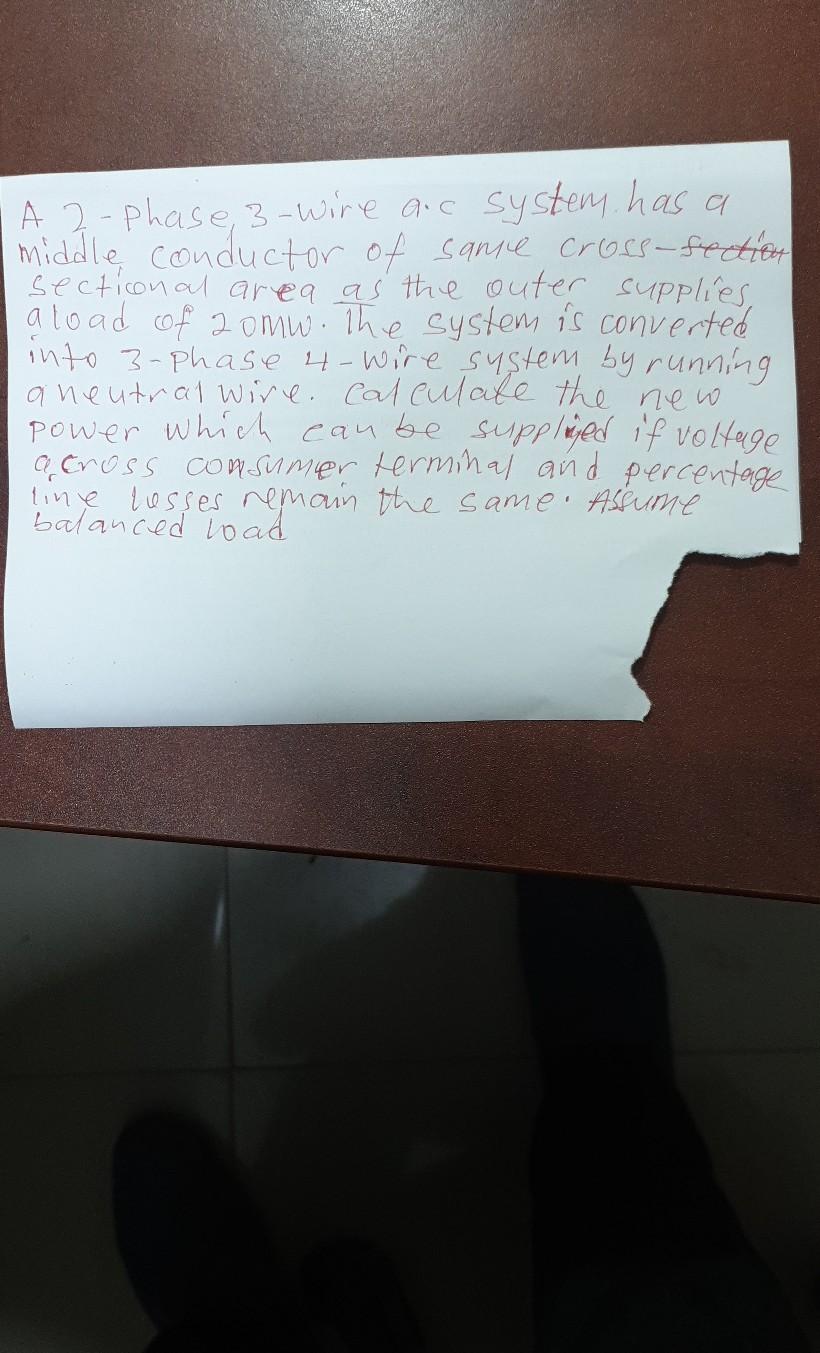 A 2-phase, 3-wire a.c system has a
middle conductor of same cross-section
sectional area as the outer supplies
a load of 20mw. The system is converted
into 3-phase 4-wire system by running
a neutral wire. calculate the new
power which can be supplied if voltage
across consumer terminal and percentage
line losses remain the same. Assume
balanced load